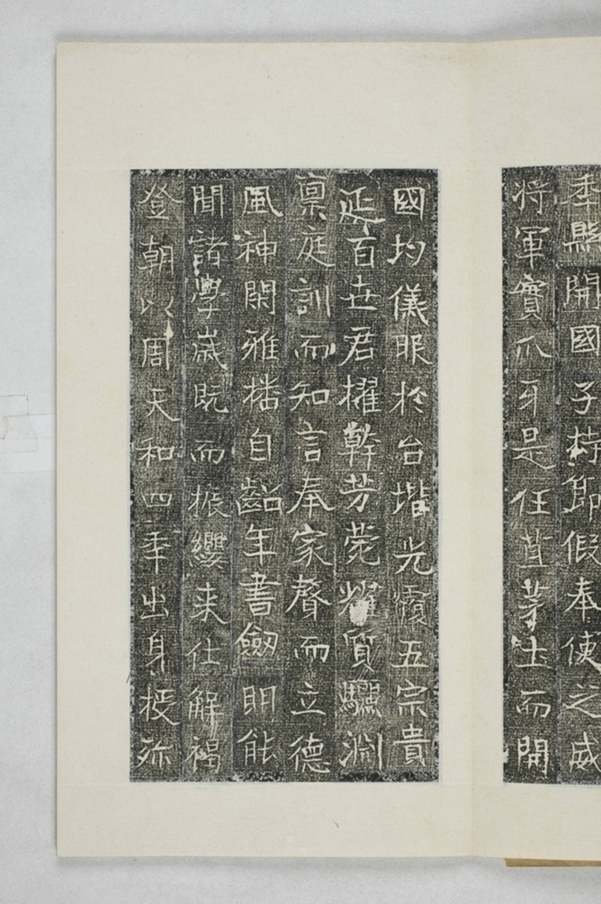 季縣開國子持節假奉使之威
将軍實爪牙是任苴茅土而開
國均儀眂於台堦光隆五宗貴
延百世君擢幹芳苑耀質驪淵
禀庭訓而知言奉家聲而立德
風神閑雅播自齠年書劒明能
聞諸學歲既而振纓来仕解褐
登朝以周天和四年出身授弥